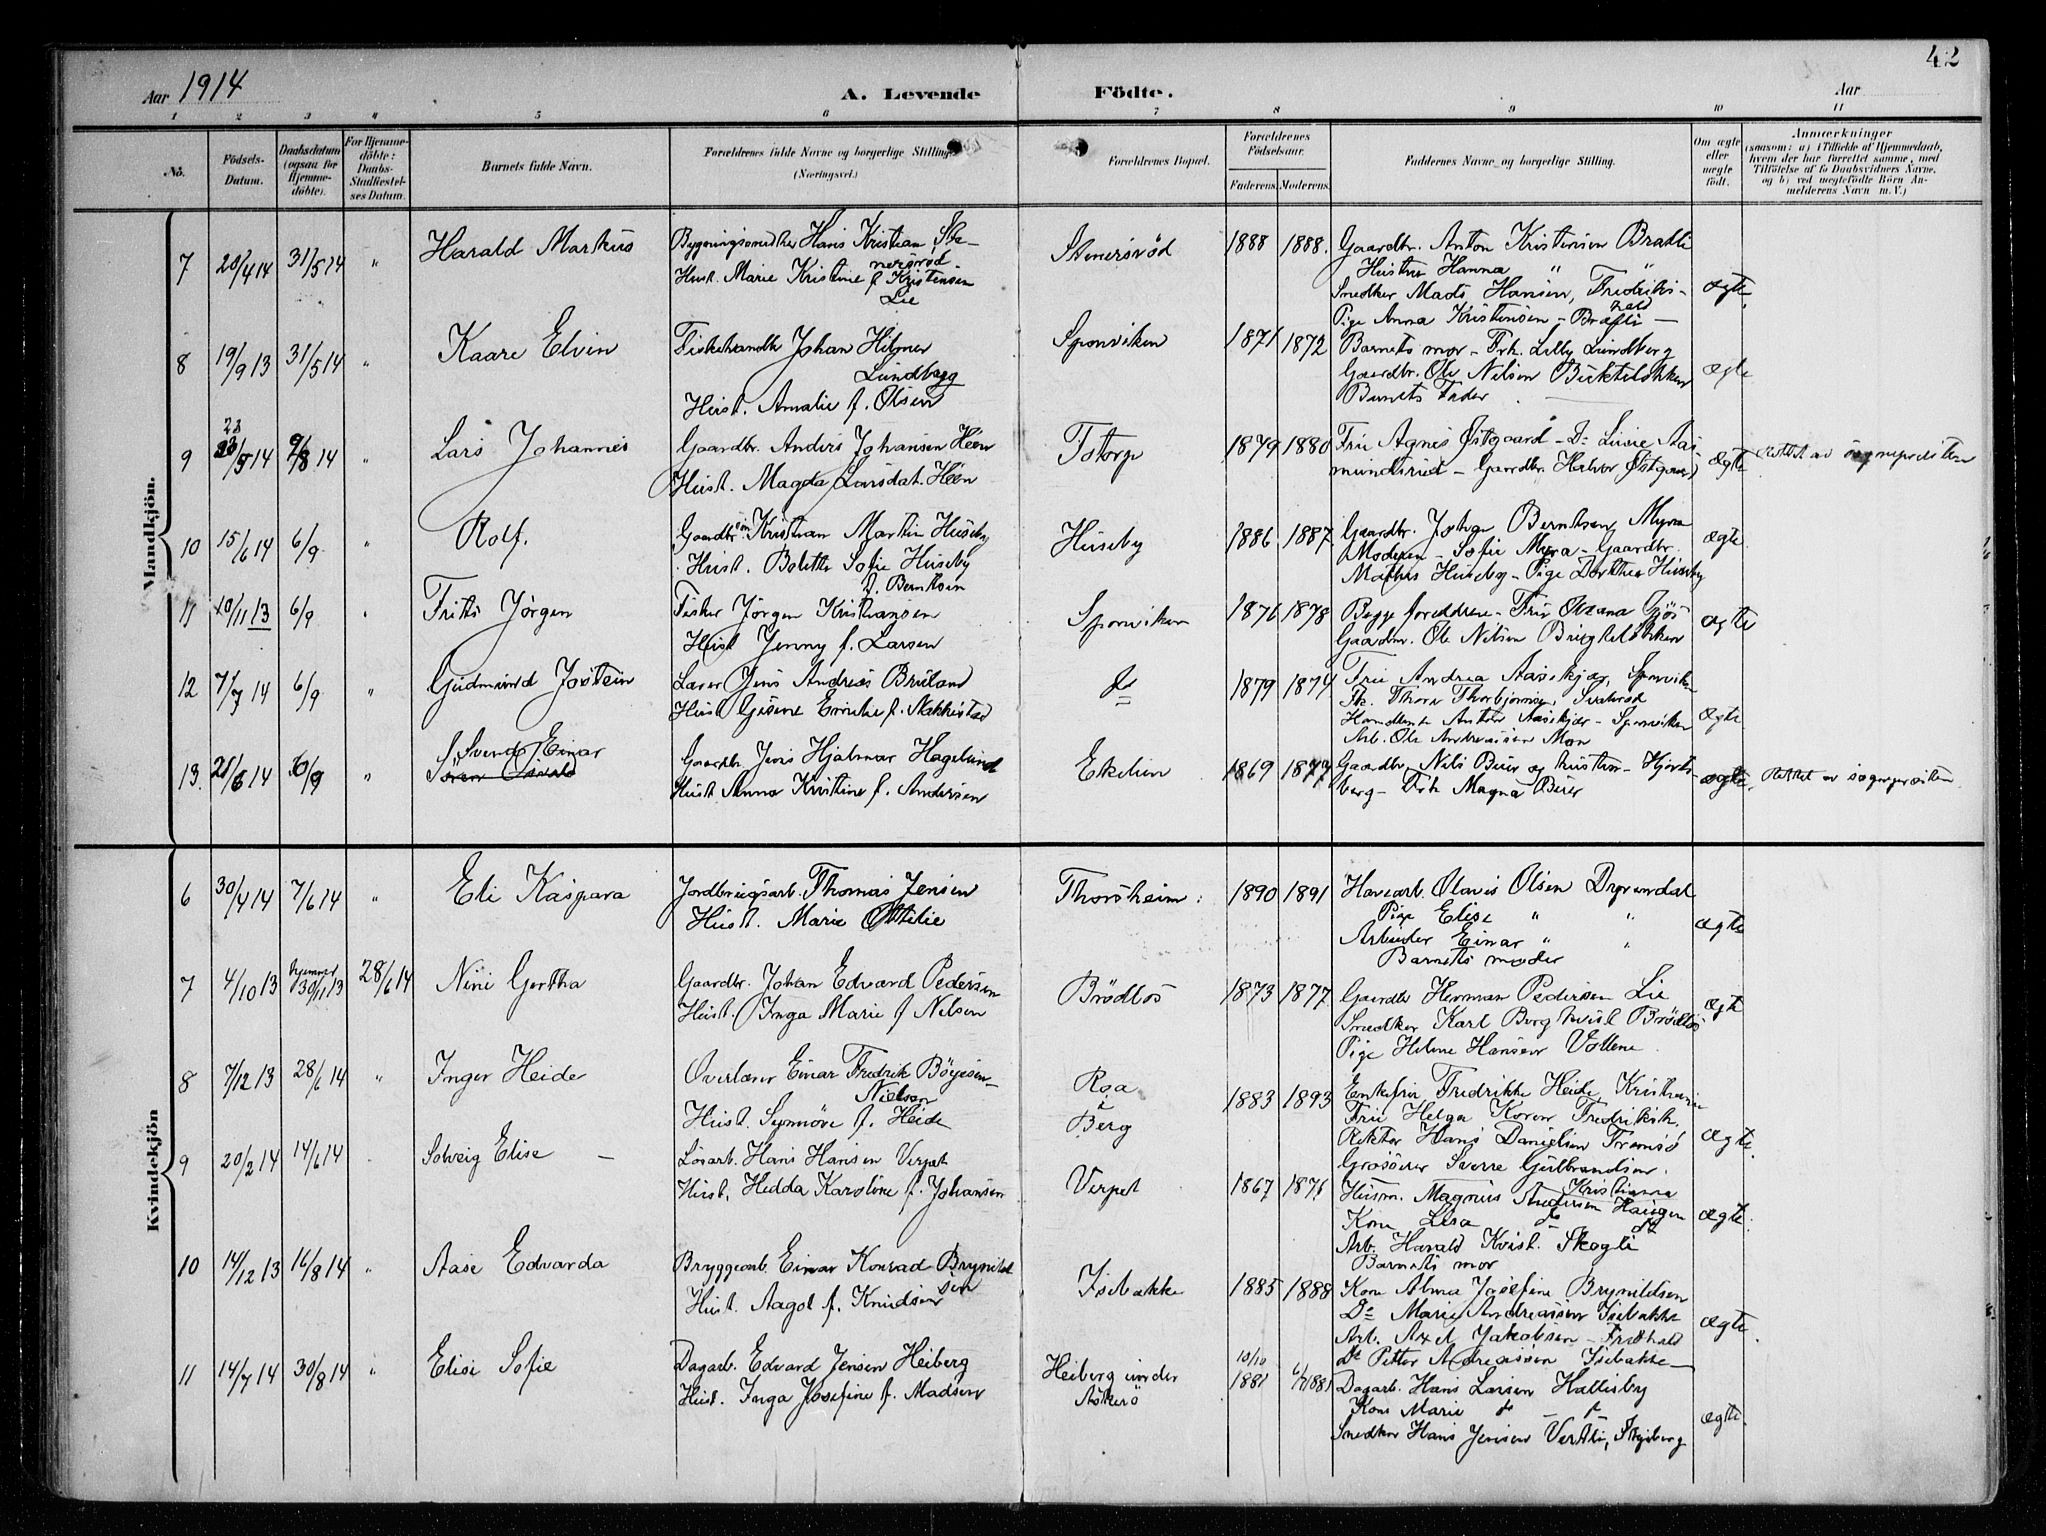 42
Aar 1914
A. Levende Födte.
Aar
1 2 3 4 5 6 7 8 9 10 11
No.
Födsels-Datum.
Daabsdatum (ogsaa for Hjemme-döbte).
For Hjemme-döbte: Daabs-Stadfæstel-ses Datum.
Barnets fulde Navn.
Forældrenes fulde Navne og borgerlige Stilling (Næringsvei.)
Forældrenes Bopæl.
Forældrenes Födselsaar.
Faderens. Moderens.
Faddernes Navne og borgerlige Stilling.
Om ægte eller uægte födt.
Anmærkninger
(saasom: a) i Tilfælde af Hjemmedaab, hvem der har forrettet samme, med Tilföielse af to Daabsvidners Navne, og b) ved uægtefödte Börn An-melderens Navn m. V.)
Mandkjön.
7 20/4 14 31/5 14 " Harald Markus
Bygningssnedker Hans Kristian Ste-
nersröd
Hust. Marie Kristine f. Kristensen
Lie
Stenersröd 1888 1888.
Gaardbr. Anton Kristensen Brätli
Hustru Hanna "
Snedker Mads Hansen, Fredriks-
hald
Pige Anna Kristensen - Brätli -
ægte.
8 19/9 13 31/5 14 " Kaare Elvin
Fiskehandler Johan Hilmer
Lundberg
Hust. Amalie f. Olsen
Sponviken 1871 1872
Barnets mor - Frk. Lilly Lundberg
Gaardbr. Ole Nilsen
Barnets Fader
ægte
9 23/5 14 9/8 14 " Lars Johannes
Gaardbr. Anders Johansen Heen
Hust. Magda Larsdat. Heen
Torp 1879 1880
Fru Agnes Østgaard - Do Lucie Aas-
mundsrud - Gaardbr. Halvor Østgaard
ægte Rettet av sogneprästen
10 15/6 14 6/9 " Rolf.
Gaardbr. sön Kristian Martin Huseby
Hust. Bolette Sofie Huseby
f. Berntsen
Huseby 1886 1887
Gaardbr. Johan Berntsen Myra
Moderen - Sofie Myra - Gaardbr.
Mathis Huseby - Pige Dorthea Huseby
ægte
11 10/11 13 6/9 " Frits Jörgen
Fisker Jörgen Kristiansen
Hust Jenny f. Larsen
Sponviken 1876 1878
Begge foreldrene - Fru Oleana Gjös
Gaardbr. Ole Nilsen
ægte
12 7/7 14 6/9 " Gudmund Jostein
Lærer Jens Andreas Bruland
Hust Gesine Emilie f. Nakkestad
do 1879 1874
Fru Andrea Aaseskjær, Sponviken
Frk. Thora Thorbjornsen, Svalerød
Handlende Anton Aaseskjær - Sponviken
Arb. Ole Andreassen Mon
ægte
13. 28/6 14 6/9 " Svend Einar
Sören Osvald
Gaardbr. Jens Hjalmar Hagelund
Hust Anna Kristine f. Andersen
Ekelien 1869 1877
Gaardbr Nils Buer og hustru - Hjort-
berg - Frk Magna Buer
ægte. Rettet av sogneprästen
Kvindekjön
6 30/4 14 7/6 14 " Eli Kaspara
Jordbrugsarb. Thomas Jensen
Hust. Marie Ottilie
Thorsheim 1890 1891
Havearb. Olavis Olsen Dyrendal
Pige Elise " "
Arbeider Einar " "
Barnets moder
ægte
7 4/10 13 hjemme 30/11 13 28/6 14 Nini Gertha
Gaardbr. Johan Edvard Pedersen
Hust. Inga Marie f Nilsen
Brödlös 1873 1877
Gaardbr Herman Pedersen Lie
Snedker Karl Berg Kvist Brödlös
Pige Helene Hansen Vollene.
ægte
8 7/12 13 28/6 14 " Inger Heide
Overlærer Einar Fredrik Böyesen-
Nielsen
Hust. Synnöve f. Heide
Raa
i
Berg
1883 1893
Enkefru Fredrikke Heide, Kristiania
Fru Helga Koren Fredriksh.
Rektor Hans Danielsen Tromsö
Grosserer Sverre Gulbrandsen.
Kristiania
ægte.
9 20/2 14 14/6 14 Solveig Elise -
Lösarb. Hans Hansen Verpet
Hust. Hedda Karoline f. Johansen
Verpet 1867 1871
Husm. Magnus Andersen Haugen
Kone Lisa do do
Arb. Harald Kvist. Skogli
Barnets mor
ægte.
10 14/12 13 16/8 14 " Aase Edvarda
Bryggearb. Einar Konrad Brynild
sen
Hust. Aagot f. Knudsen
Isebakke 1885 1888
Kone Alma Josefine Brynildsen
Do Marie Andreassen Isebakke
Arb. Axel Jakobsen - Frhald
Do Petter Andreassen Isebakke -
ægte.
11 14/7 14 30/8 14 " Elise Sofie
Dagarb. Edvard Jensen Heiberg
Hust. Inga Josefine f. Madsen
Heiberg under
Askerö
10/10 1881 1881
Dagarb. Hans Larsen Hallesby
Kone Marie do - do
Snedker Hans Jensen Vertli, Skjeberg
ægte.